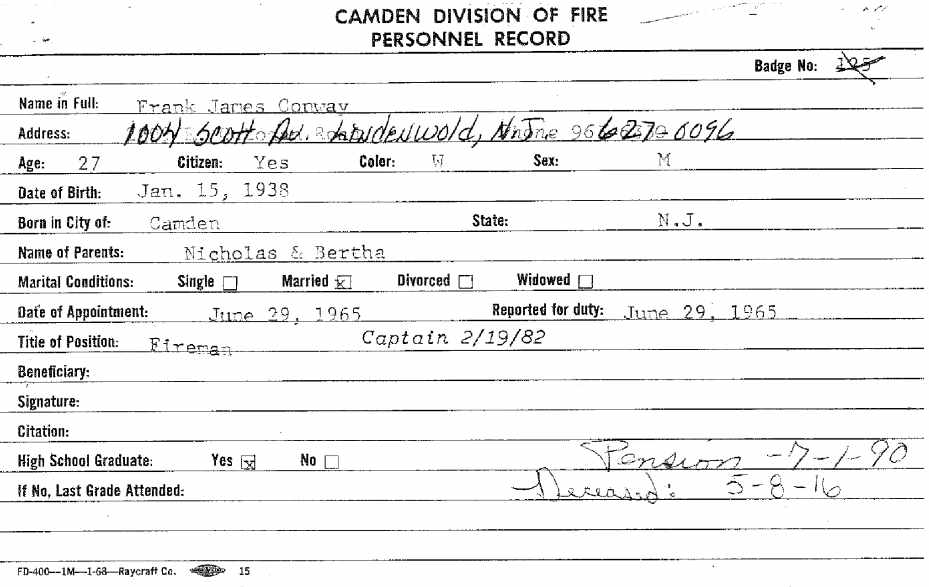 CAMDEN DIVISION OF FIRE
PERSONNEL RECORD
Badge No: 125
Name in Full: Frank James Conway
Address: 1004 Scott Av. Lindenwold, NJ 627-0096
Age: 27 Citizen: Yes Color: W Sex: M
Date of Birth: Jan. 15, 1938
Born in City of: Camden State: N.J.
Name of Parents: Nicholas & Bertha
Marital Conditions: Single Married x Divorced Widowed
Date of Appointment: June 29, 1965 Reported for duty: June 29, 1965
Title of Position: Fireman Captain 2/19/82
Beneficiary:
Signature:
Citation:
High School Graduate: Yes x No Pension -7-1-90
If No, Last Grade Attended: Deceased: 5-8-16
FD-400—1M—1-68—Raycraft Co. 15